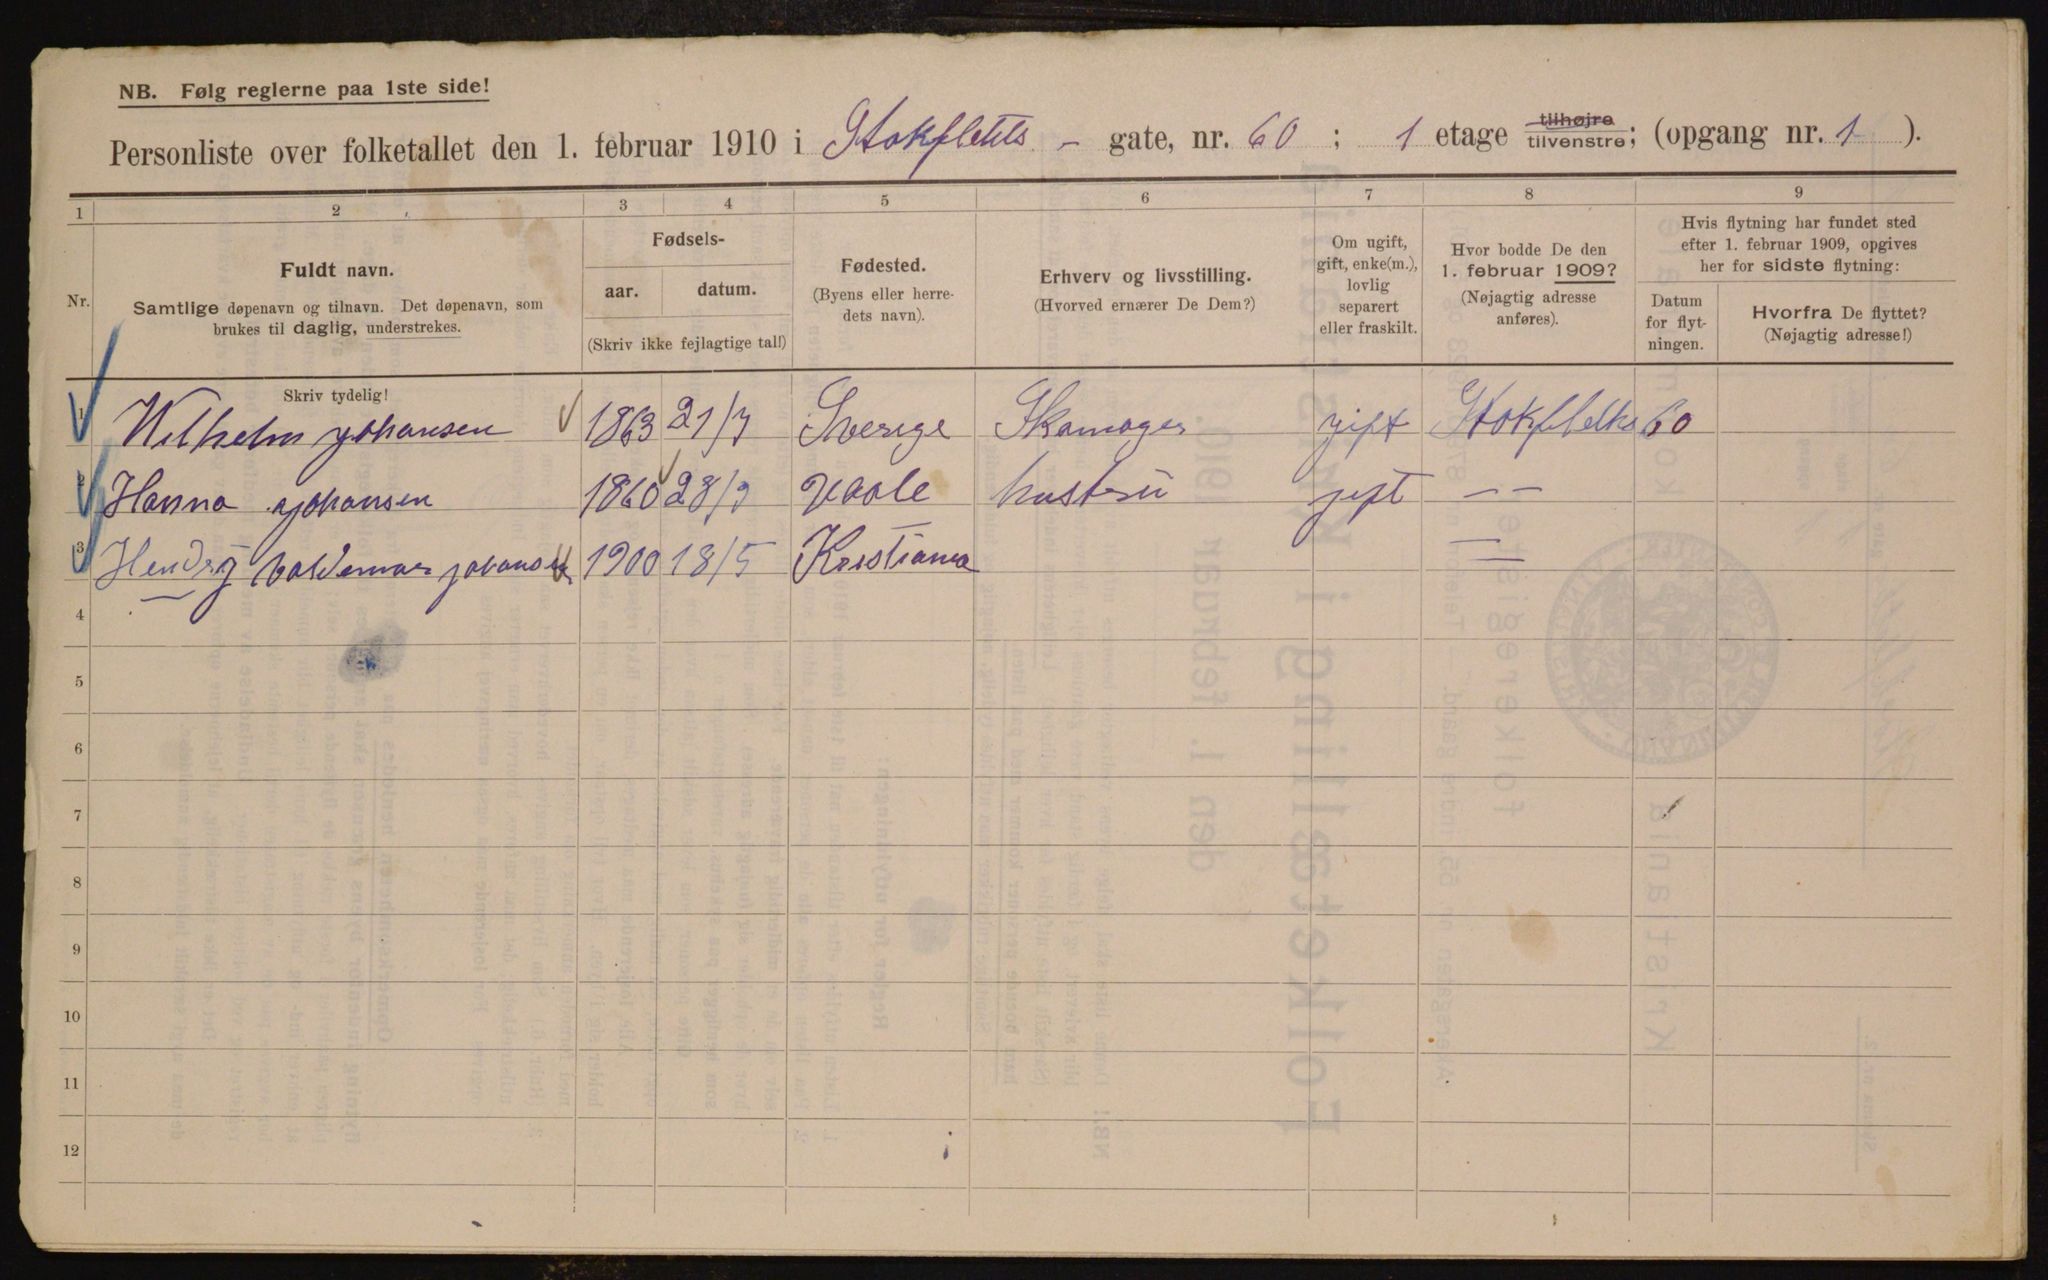 NB. Følg reglerne paa 1ste side!
Personliste over folketallet den 1. februar 1910 i Stokfletts - gate, nr. 60 ; 1 etage tilhøjre tilvenstre; (opgang nr. 1 ).
1 2 3 4 5 6 7 8 9
Nr.
Fuldt navn.
Samtlige døpenavn og tilnavn. Det døpenavn, som
brukes til daglig, understrekes.
Skriv tydelig!
Fødsels-
aar. datum.
(Skriv ikke fejlagtige tal!)
Fødested.
(Byens eller herre-
dets navn).
Erhverv og livsstilling.
(Hvorved ernærer De Dem?)
Om ugift,
gift, enke(m.),
lovlig
separert
eller fraskilt.
Hvor bodde De den
1. februar 1909?
(Nøjagtig adresse
anføres).
Hvis flytning har fundet sted
efter 1. februar 1909, opgives
her for sidste flytning:
Datum
for flyt-
ningen.
Hvorfra De flyttet?
(Nøjagtig adresse!)
1 Wilhelm Johansen 1863 21/3 Sverige Skomager gift Stokfletks 60
2 Hanna Johansen 1860 28/9 Vaale hustru gift — —
3 Hendrij Valdemar Johansen 1900 18/5 Kristiania — —
4
5
6
7
8
9
10
11
12